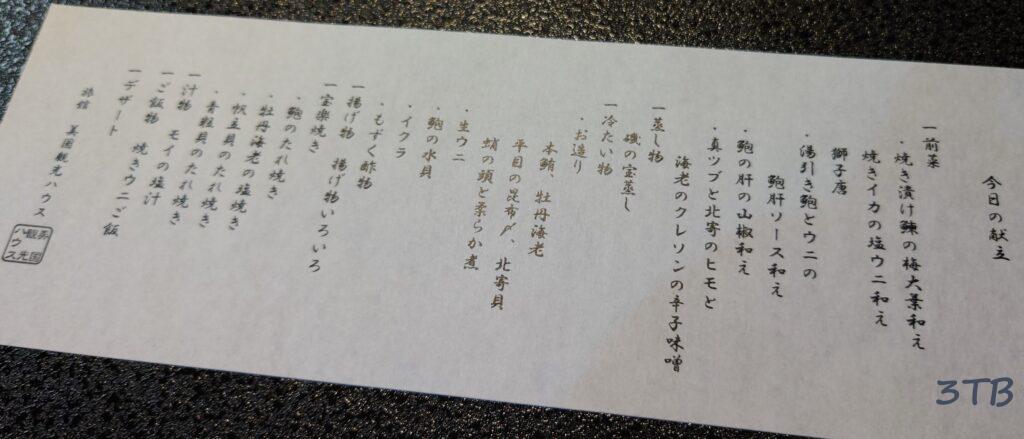 今日の献立
一前菜
・焼き漬け鰊の梅大葉和え
焼きイカの塩ウニ和え
獅子唐
・湯引き鮑とウニの
鮑肝ソース和え
・鮑の肝の山椒和え
・真ツブと北寄のヒモと
海老のクレソンの辛子味噌
一蒸し物
磯の宝蒸し
一冷たい物
・お造り
本鮪、牡丹海老
平目の昆布〆、北寄貝
蛸の頭と柔らか煮
・生ウニ
・鮑の水貝
・イクラ
・もずく酢物
一揚げ物 揚げ物いろいろ
一宝楽焼き
・鮑のたれ焼き
・牡丹海老の塩焼き
・帆立貝のたれ焼き
・青粒貝のたれ焼き
一汁物 モイの塩汁
一ご飯物 焼きウニご飯
一デザート
旅館 美国観光ハウス
美国
観光
ハウス
3TB